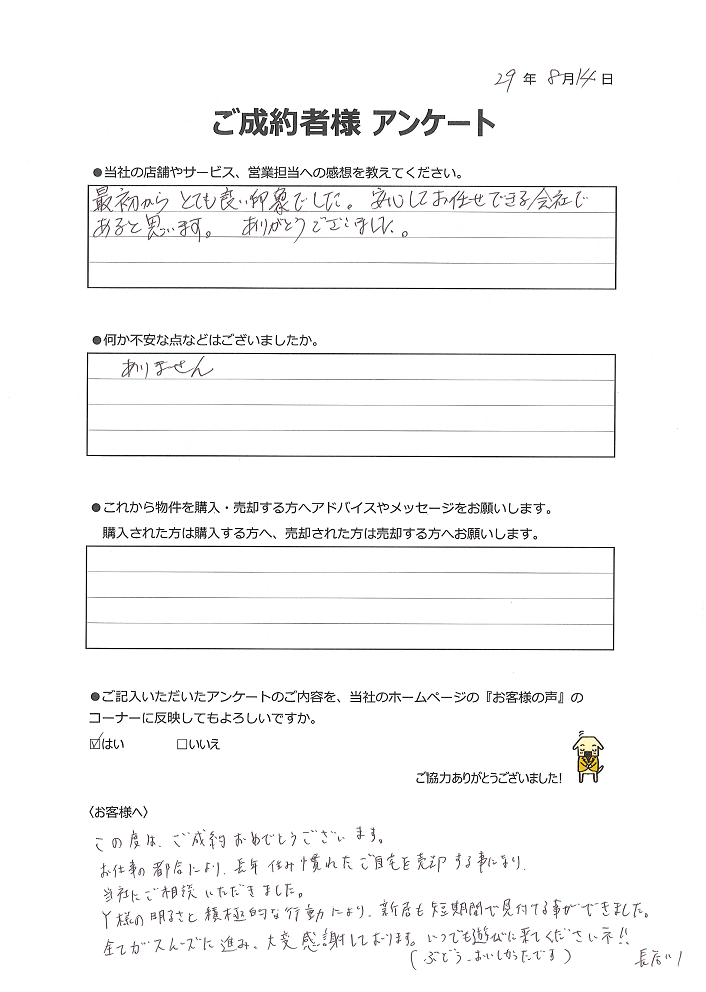 29年 8月14日
ご成約者様 アンケート
●当社の店舗やサービス、営業担当への感想を教えてください。
最初から とても良い印象でした。 安心してお任せできる会社で
あると思います。 ありがとうございました。
●何か不安な点などはございましたか。
ありません
●これから物件を購入・売却する方へアドバイスやメッセージをお願いします。
購入された方は購入する方へ、売却された方は売却する方へお願いします。
●ご記入いただいたアンケートのご内容を、当社のホームページの『お客様の声』の
コーナーに反映してもよろしいですか。
☑はい □いいえ
ご協力ありがとうございました!
〈お客様へ〉
この度は、ご成約おめでとうございます。
お仕事の都合により、長年住み慣れたご自宅を売却する事になり、
当社にご相談いただきました。
Y様の明るさと積極的な行動により、新居も短期間で見付てる事ができました。
全てがスムーズに進み、大変感謝しております。いつでも遊びに来てくださいネ!!
(ぶどう、おいしかったです)